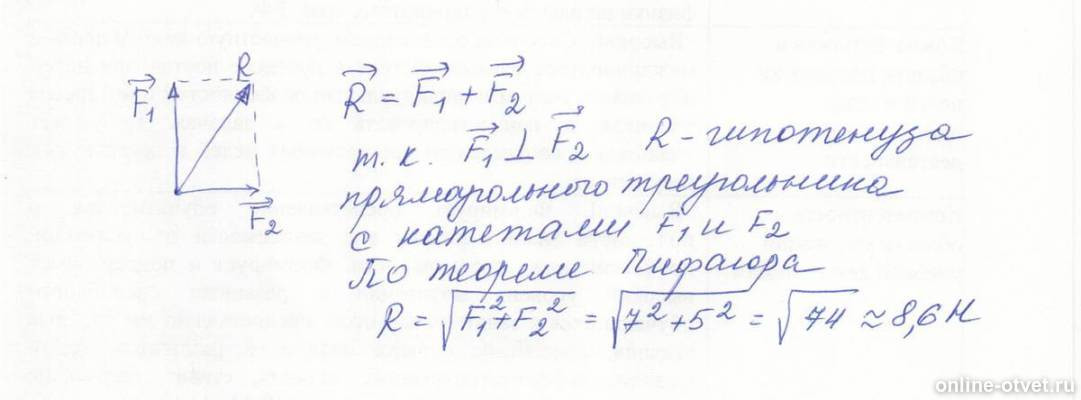 R
F₁
F₂
R = F₁ + F₂
т. к. F₁ ⊥ F₂ R - гипотенуза
прямоугольного треугольника
с катетами F₁ и F₂
По теореме Пифагора
R = √F₁² + F₂² = √7² + 5² = √74 ≈ 8,6 Н
online-otvet.ru